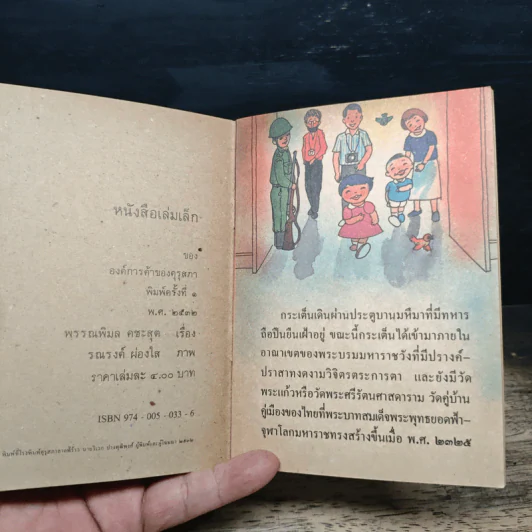 หนังสือเล่มเล็ก
ของ
องค์การค้าของคุรุสภา
พิมพ์ครั้งที่ ๑
พ.ศ. ๒๕๓๒
พรรณพิมล คชะสุต เรื่อง
รณรงค์ ผ่องใส ภาพ
ราคาเล่มละ ๔.๐๐ บาท
ISBN 974 - 005 - 033 - 6
กระเต็นเดินผ่านประตูบานมหึมาที่มีทหาร
ถือปืนยืนเฝ้าอยู่ ขณะนี้กระเต็นได้เข้ามาภายใน
อาณาเขตของพระบรมมหาราชวังที่มีปรางค์-
ปราสาทงดงามวิจิตรตระการตา และยังมีวัด
พระแก้วหรือวัดพระศรีรัตนศาสดาราม วัดคู่บ้าน
คู่เมืองของไทยที่พระบาทสมเด็จพระพุทธยอดฟ้า-
จุฬาโลกมหาราชทรงสร้างขึ้นเมื่อ พ.ศ. ๒๓๒๕